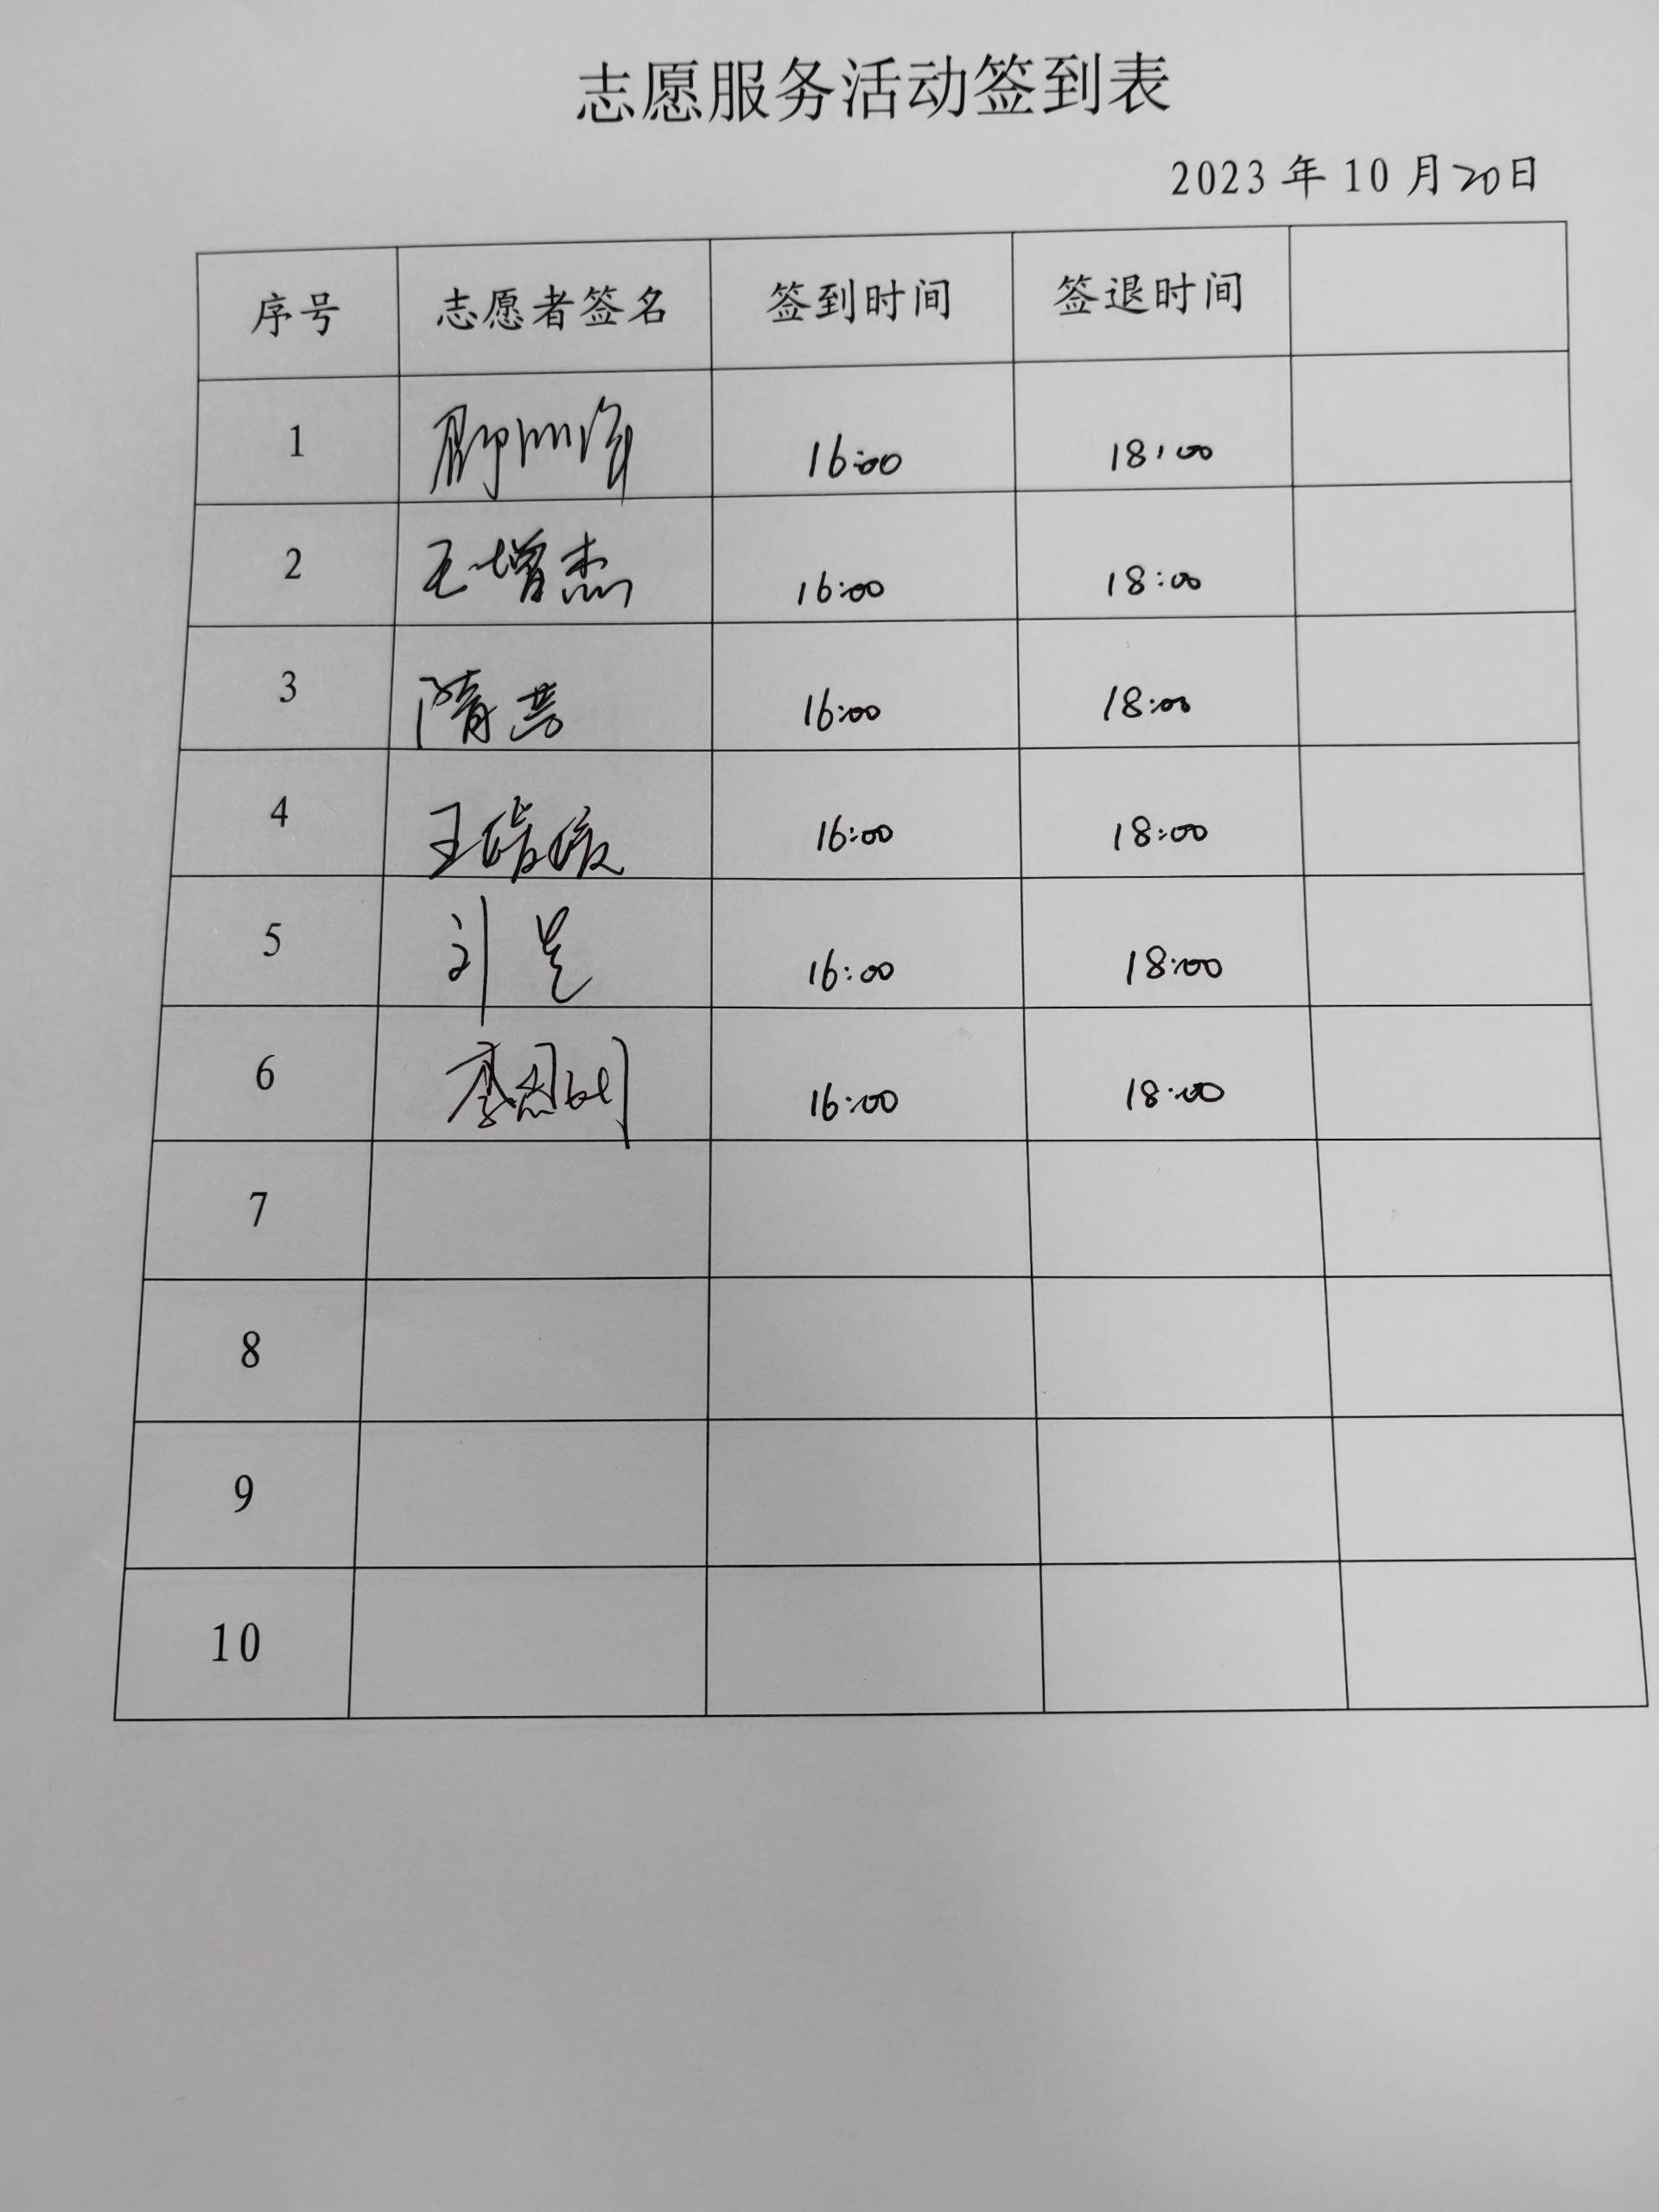 志愿服务活动签到表
2023年10月20日
序号 志愿者签名 签到时间 签退时间
1 16:00 18:00
2 王增杰 16:00 18:00
3 隋 16:00 18:00
4 王 16:00 18:00
5 刘 16:00 18:00
6 16:00 18:00
7
8
9
10